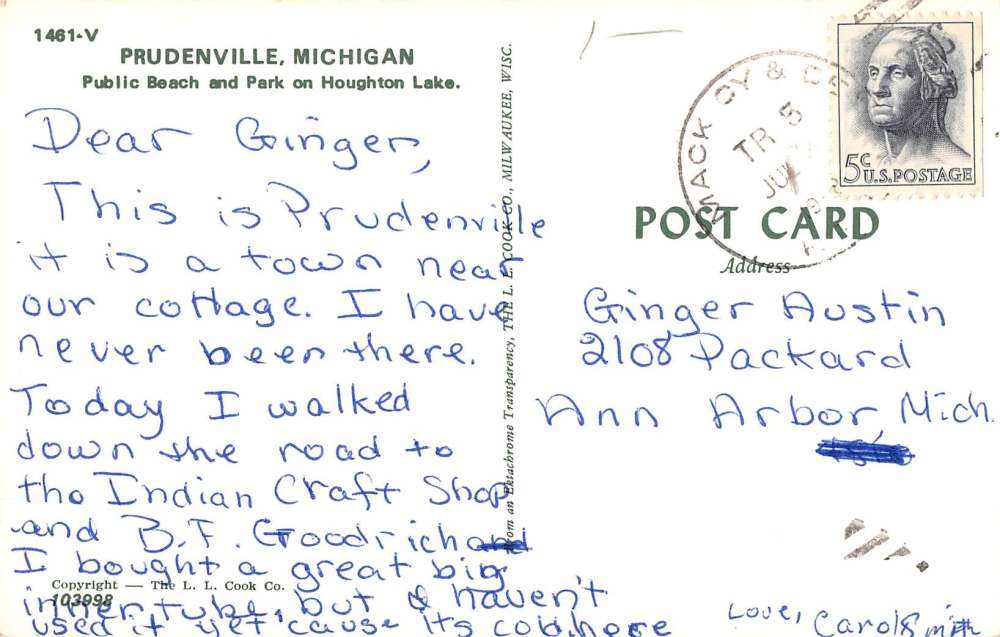 1461-V
PRUDENVILLE, MICHIGAN
Public Beach and Park on Houghton Lake.
Dear Ginger,
This is Prudenville
it is a town near
our cottage. I have
never been there.
Today I walked
down the road to
tho Indian Craft Shop
and B.F. Goodrich
I bought a great big
innertube, but I haven't
used it yet cause its cold here
Love, Carol Smith
Copyright — The L. L. Cook Co.
103998
From an Ektachrome Transparency, THE L. L. COOK CO., MILWAUKEE, WISC.
MACK CY & C
TR 5
5c
U.S. POSTAGE
POST CARD
Address
Ginger Austin
2108 Packard
Ann Arbor, Mich.